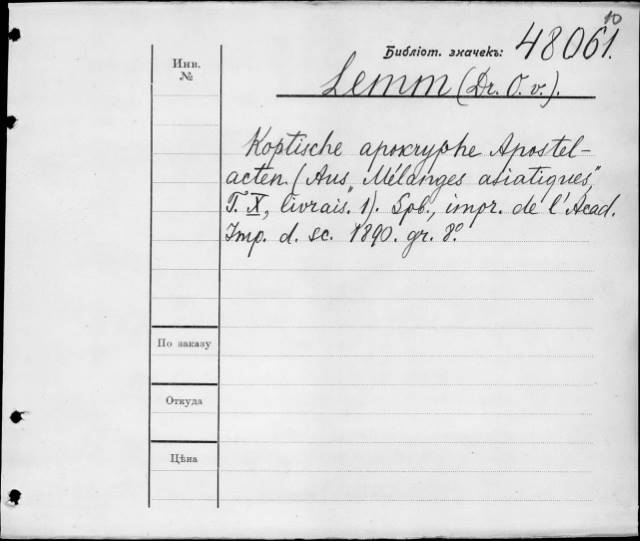 10
Библіот. значекъ: 48061.
Инв.
№
Lemm (Dr. O. v.).
Koptische apokryphe Apostel-
acten (Aus „Mélanges asiatiques",
T. X, livrais. 1). Spb., impr. de l'Acad.
Imp. d. sc. 1890. gr. 8°.
По заказу
Откуда
Цѣна